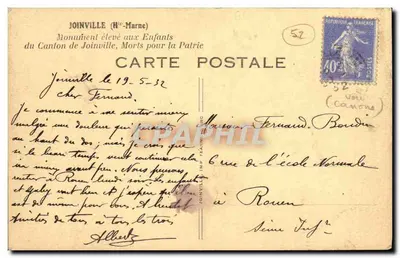 JOINVILLE (Hte-Marne)
Monument élevé aux Enfants
du Canton de Joinville, Morts pour la Patrie
52
CARTE POSTALE
REPUBLIQUE FRANÇAISE
40c
Joinville le 19-5-32
cher Fernand.
Je commence à me sentir mieux
malgré une douleur qui persiste
au haut du dos, mais je crois que
si le beau temps veut continuer cela
ira mieux avant peu. Nous pensons
à Rouen lundi soir, les enfants
et vont bien et j'espère qu'il en
est de même pour vous. A bientôt
de tous à tous les trois
Albert
Monsieur Fernand Bourdin
6 rue de l'école Normale
à Rouen
Seine Infre
CPAPHIL